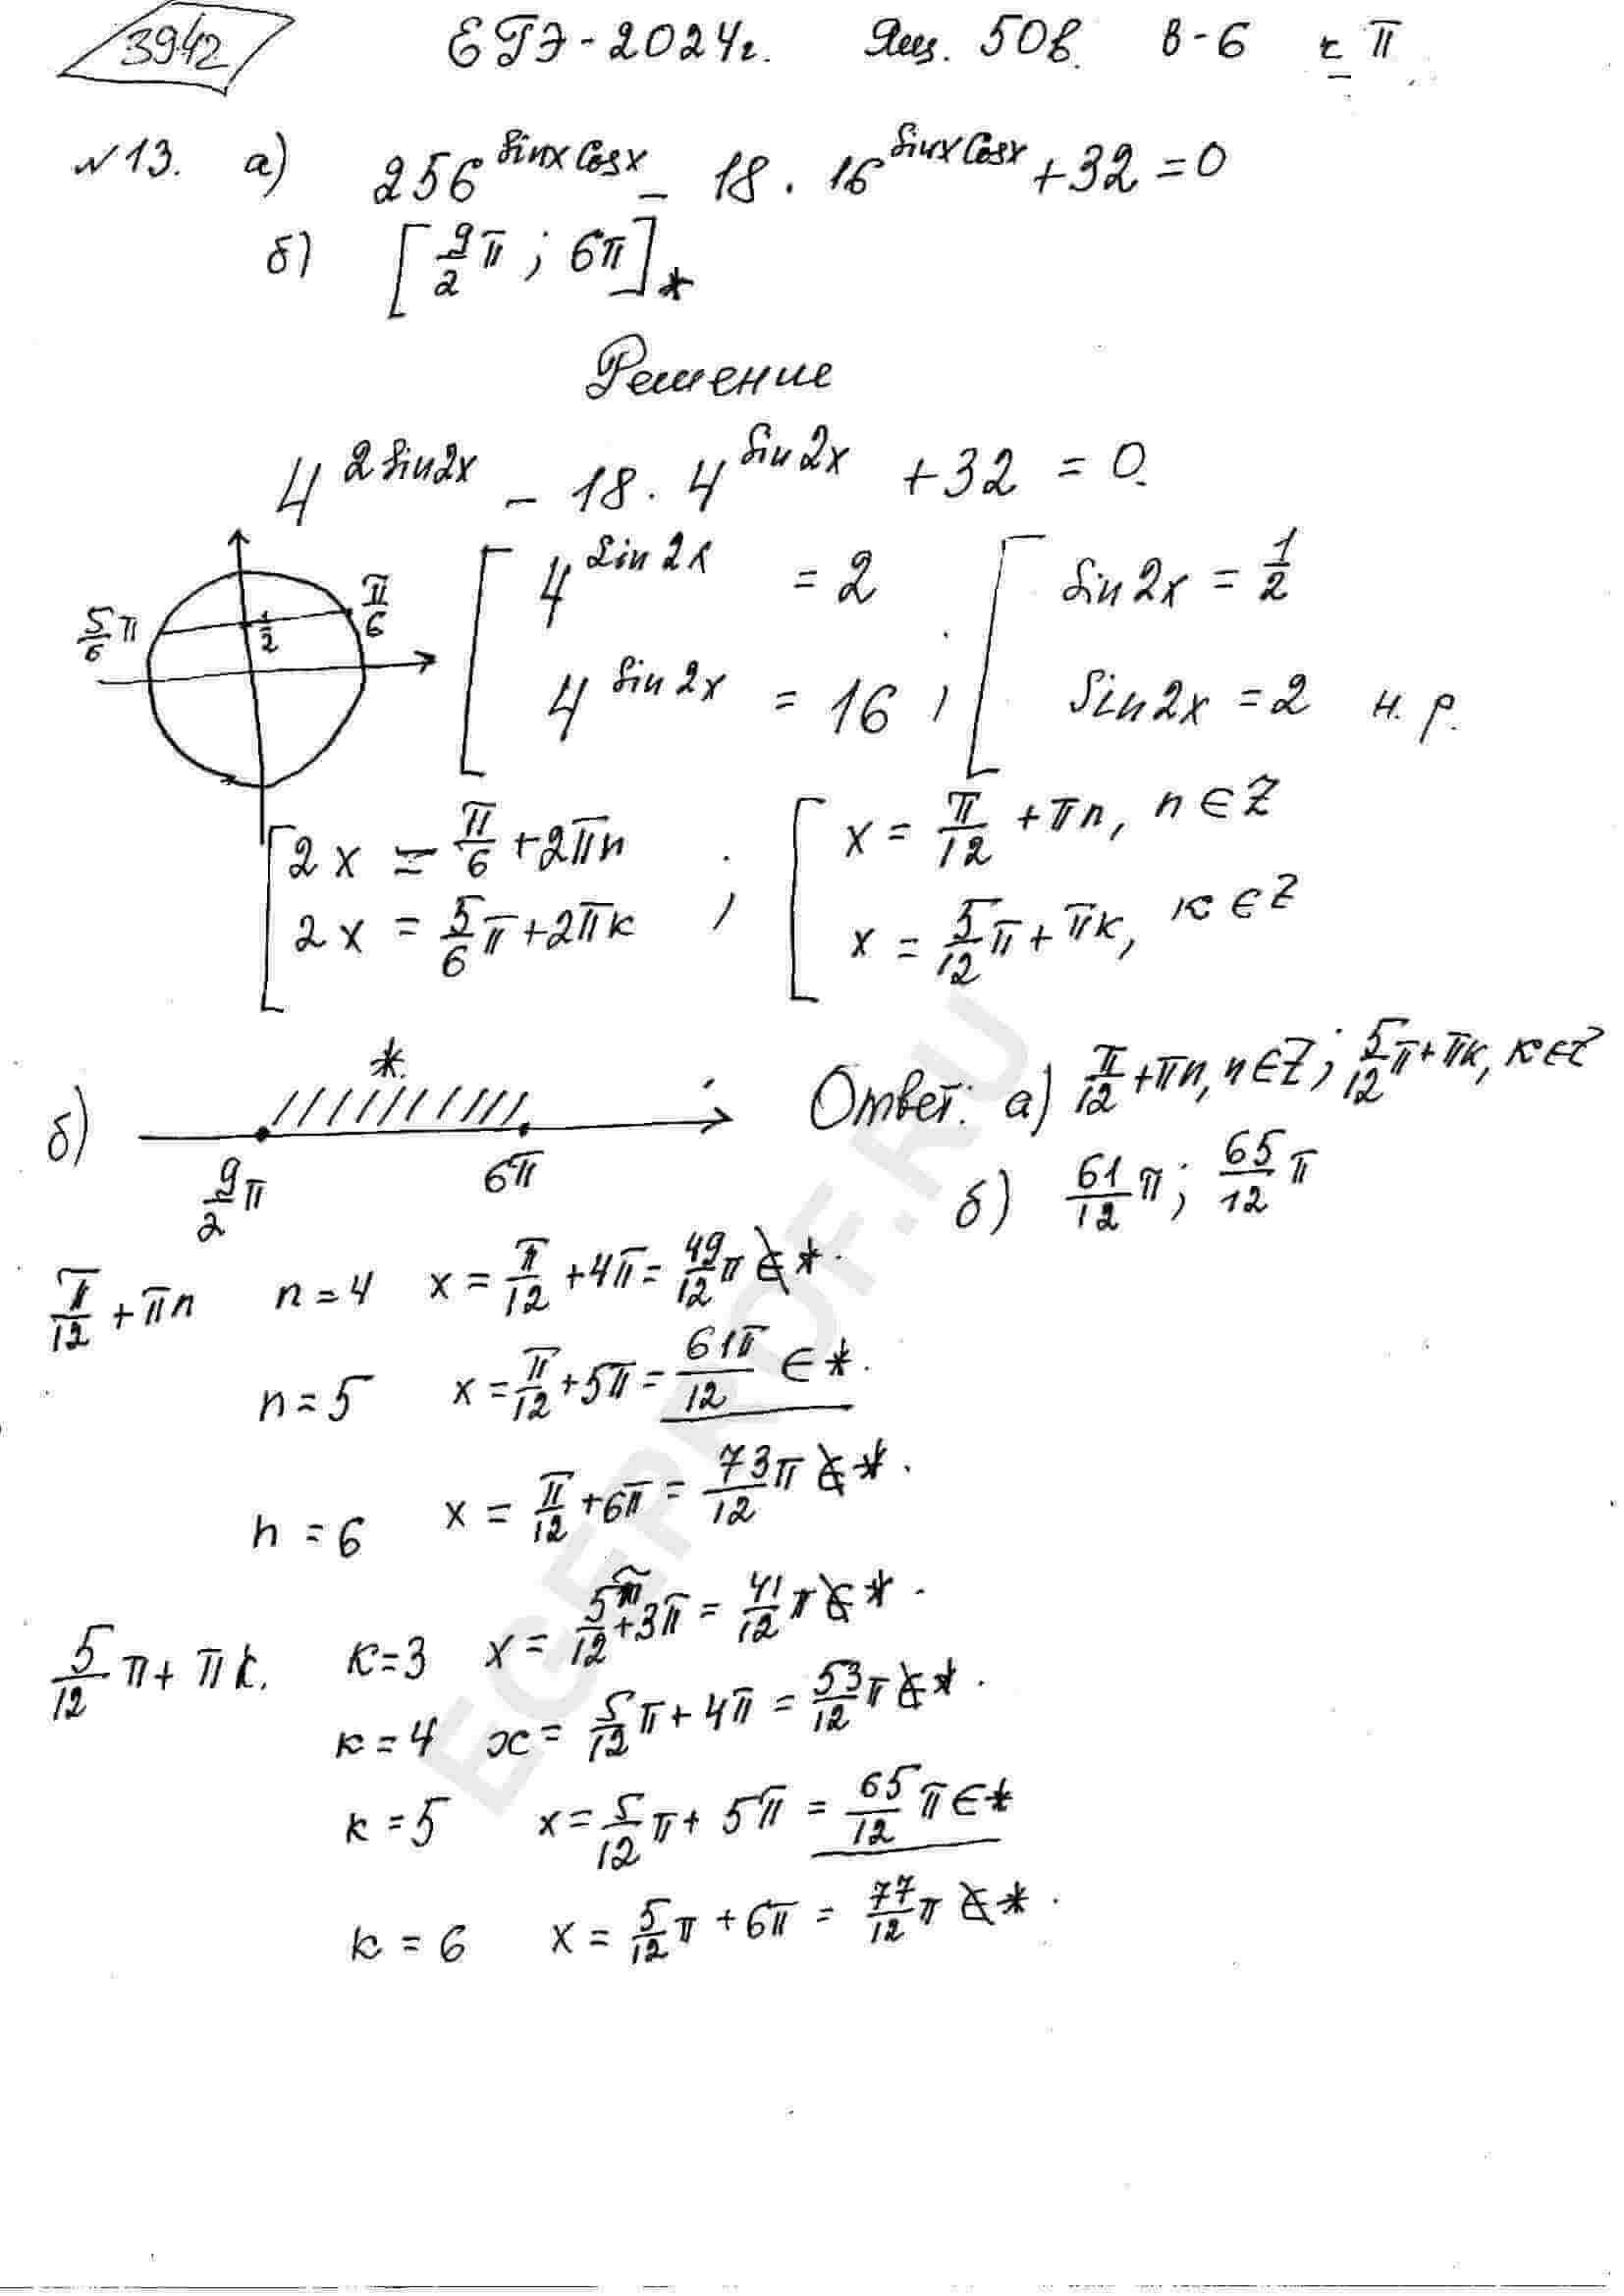 3942 ЕГЭ-2024г. Ящ. 50в. В-6 ч II
№13. а) 256^{sinx cosx} - 18 · 16^{sinx cosx} + 32 = 0
б) [9/2 π ; 6π]*
Решение
4^{2sin2x} - 18 · 4^{sin2x} + 32 = 0.
5/6 π 1/2 π/6
[ 4^{sin2x} = 2 [ sin2x = 1/2
4^{sin2x} = 16 ; sin2x = 2 н.р.
[ 2x = π/6 + 2πn ; [ x = π/12 + πn, n∈Z
2x = 5/6 π + 2πк x = 5/12 π + πк, к∈Z
б) *
9/2 π 6π
Ответ: а) π/12 + πn, n∈Z; 5/12 π + πк, к∈Z
б) 61/12 π; 65/12 π
π/12 + πn n = 4 x = π/12 + 4π = 49/12 π ∉ *.
n = 5 x = π/12 + 5π = 61π/12 ∈ *.
n = 6 x = π/12 + 6π = 73/12 π ∉ *.
5/12 π + πк. к = 3 x = 5π/12 + 3π = 41/12 π ∉ *.
к = 4 x = 5/12 π + 4π = 53/12 π ∉ *.
к = 5 x = 5/12 π + 5π = 65/12 π ∈ *
к = 6 x = 5/12 π + 6π = 77/12 π ∉ *.
EGEPROF.RU